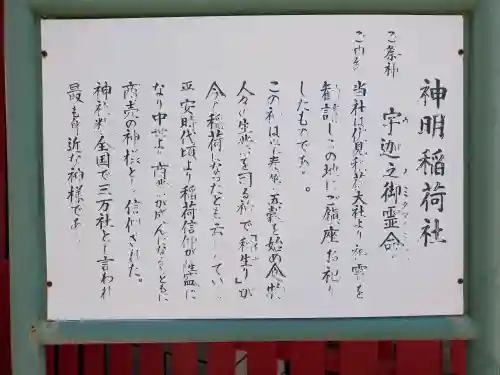 神明稲荷社
ご祭神 宇迦之御霊命
ウカノミタマノミコト
ご由緒
当社は伏見稲荷大社より御霊を
勧請しこの地にご鎮座お祀り
したものである。
この神は衣食住、五穀を始め
人々の生業を司る神で「稲生り」が
今の稲荷になったとも云っている
平安時代頃より稲荷信仰が盛に
なり中世より商業が盛んになるともに
商売の神様として信仰された。
神社数全国で三万社と言われ
最も身近な神様である